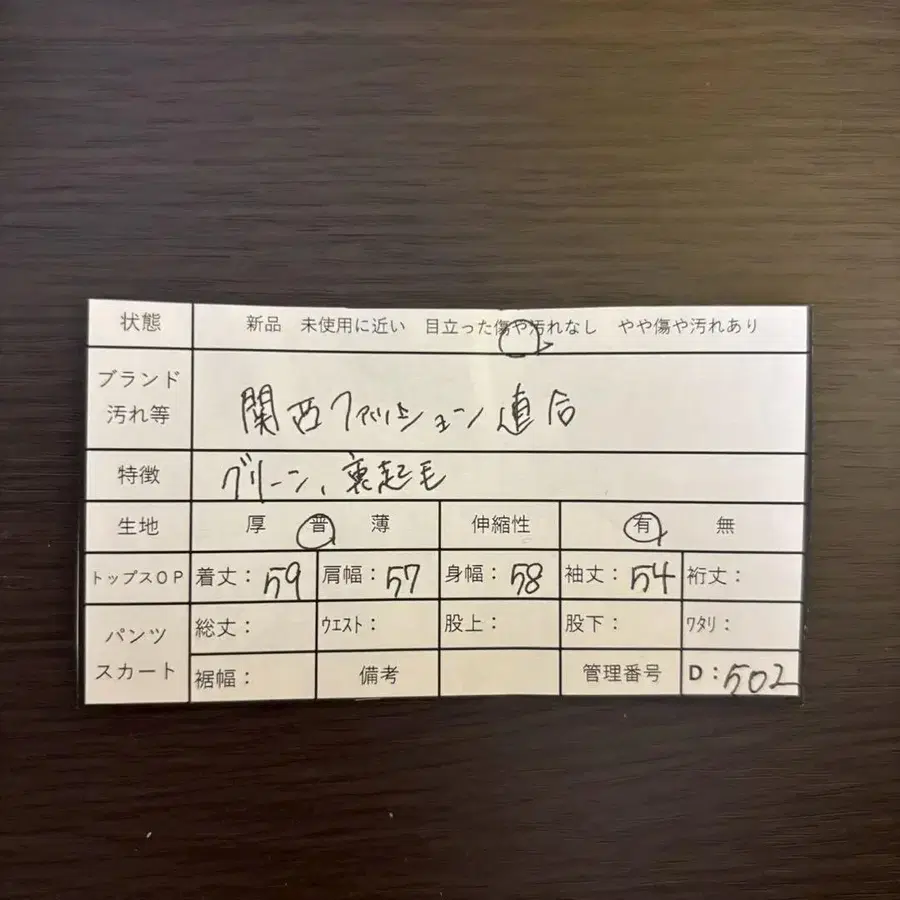 状態 新品 未使用に近い 目立った傷や汚れなし やや傷や汚れあり
ブランド
汚れ等
関西ファッション連合
特徴 グリーン、裏起毛
生地 厚 普 薄 伸縮性 有 無
トップスOP 着丈：59 肩幅：57 身幅：58 袖丈：54 裄丈：
パンツ
スカート
総丈： ウエスト： 股上： 股下： ワタリ：
裾幅： 備考 管理番号 D：502